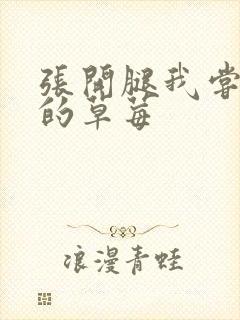 張開腿我嘗
的草莓
浪漫青蛙